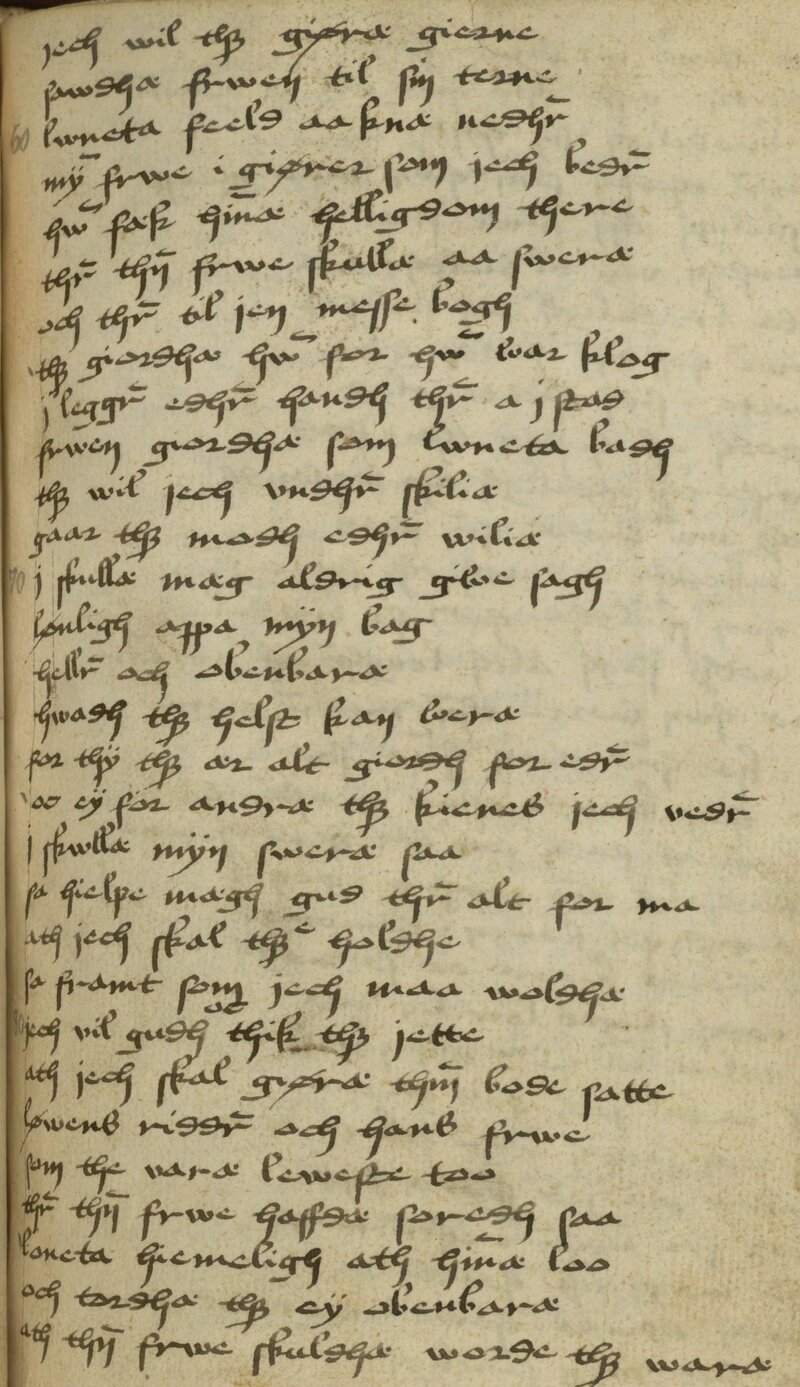 jech wil thꝫ giøræ gierne
sawdhæ frwen til sin terne
60 lwneta feeld aa knæ nedhr̄
mÿ̄ frwe i giører som jech bedr̄
hw̄ fæk hin̄æ helligdom there
thr̄ thn̄ frwe skullæ aa sweræ
och thr̄ til jen messe bogh
thꝫ giordhæ hw̄ for hw̄ war klog
j leggr̄ edhr̄ handh thr̄ a j stad
frwen giordhæ som lwneta badh
thꝫ wil jech vndhr̄ skiliæ
gaar thꝫ modh edhr̄ wiliæ
70 j skullæ mæg aldrig giwe sagh
lønligh appa mÿn bag
hellr̄ och obenbaræ
hwadh thꝫ helst kan weræ
for thÿ thꝫ ær alt giordh for edr̄
oc eÿ for andræ thꝫ kienes jech vedr̄
j skwllæ mÿn sweræ saa
sa hielpe mægh gud thr̄ alt for ma
ath jech skal thꝫͤ holdhe
sa framt som jech maa woldhæ
jech vil gudh oc thik thꝫ jette
ath jech skal giøræ thm̄ bode satte
løwens riddr̄ och hans frwe
som the varæ leweste too
thr̄ thn̄ frwe haffdæ soredh saa
loneta hiemeligh ath hin̄æ loo
och tordhæ thꝫ eÿ obenbaræ
ath thn̄ frwe skuldhæ worde thꝫ waræ